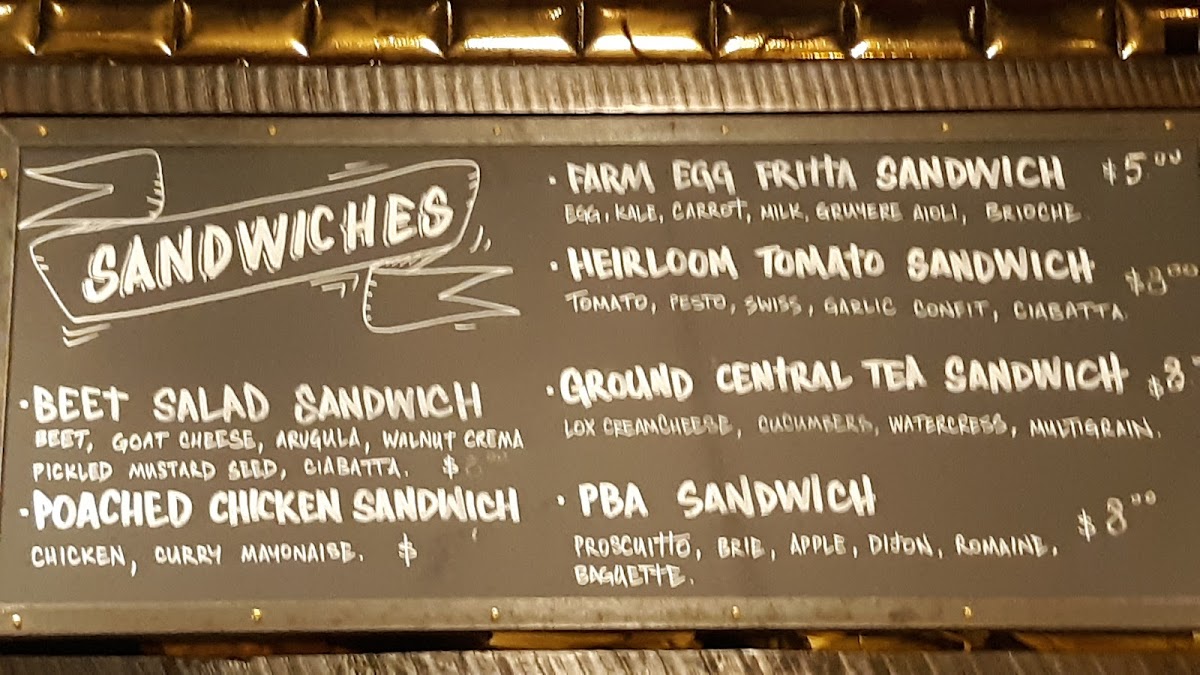 SANDWICHES
· BEET SALAD SANDWICH
BEET, GOAT CHEESE, ARUGULA, WALNUT CREMA
PICKLED MUSTARD SEED, CIABATTA. $
· POACHED CHICKEN SANDWICH
CHICKEN, CURRY MAYONAISE. $
· FARM EGG FRITTA SANDWICH $5.00
EGG, KALE, CARROT, MILK, GRUYERE AIOLI, BRIOCHE
· HEIRLOOM TOMATO SANDWICH $8.00
TOMATO, PESTO, SWISS, GARLIC CONFIT, CIABATTA.
· GROUND CENTRAL TEA SANDWICH $8
LOX CREAMCHEESE, CUCUMBERS, WATERCRESS, MULTIGRAIN.
· PBA SANDWICH $8.00
PROSCUITTO, BRIE, APPLE, DIJON, ROMAINE,
BAGUETTE.